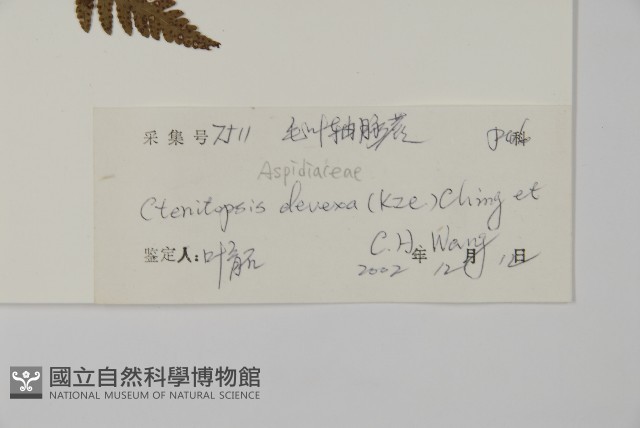 采集号 7511 毛叶轴脉蕨 科
Aspidiaceae
Ctenitopsis devexa (Kze.) Ching et
C.H. Wang
鉴定人:叶
2002年 12月 日
國立自然科學博物館
NATIONAL MUSEUM OF NATURAL SCIENCE